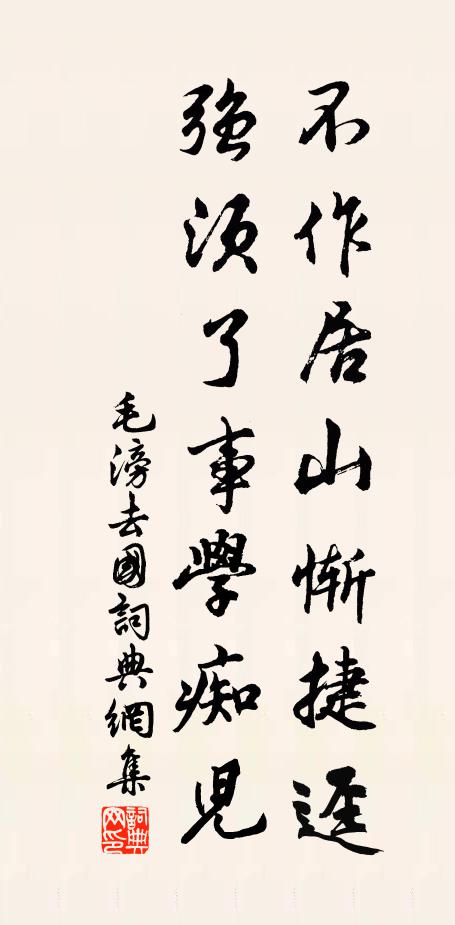 不作居山慚捷逕
強須了事學痴兒
毛滂去國詞典網集
詞典网印